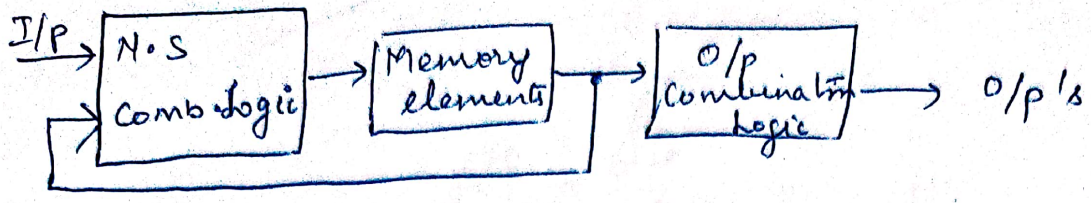 I/p
N.S
Comb. Logic
Memory
elements
O/p
Combination
Logic
O/p's